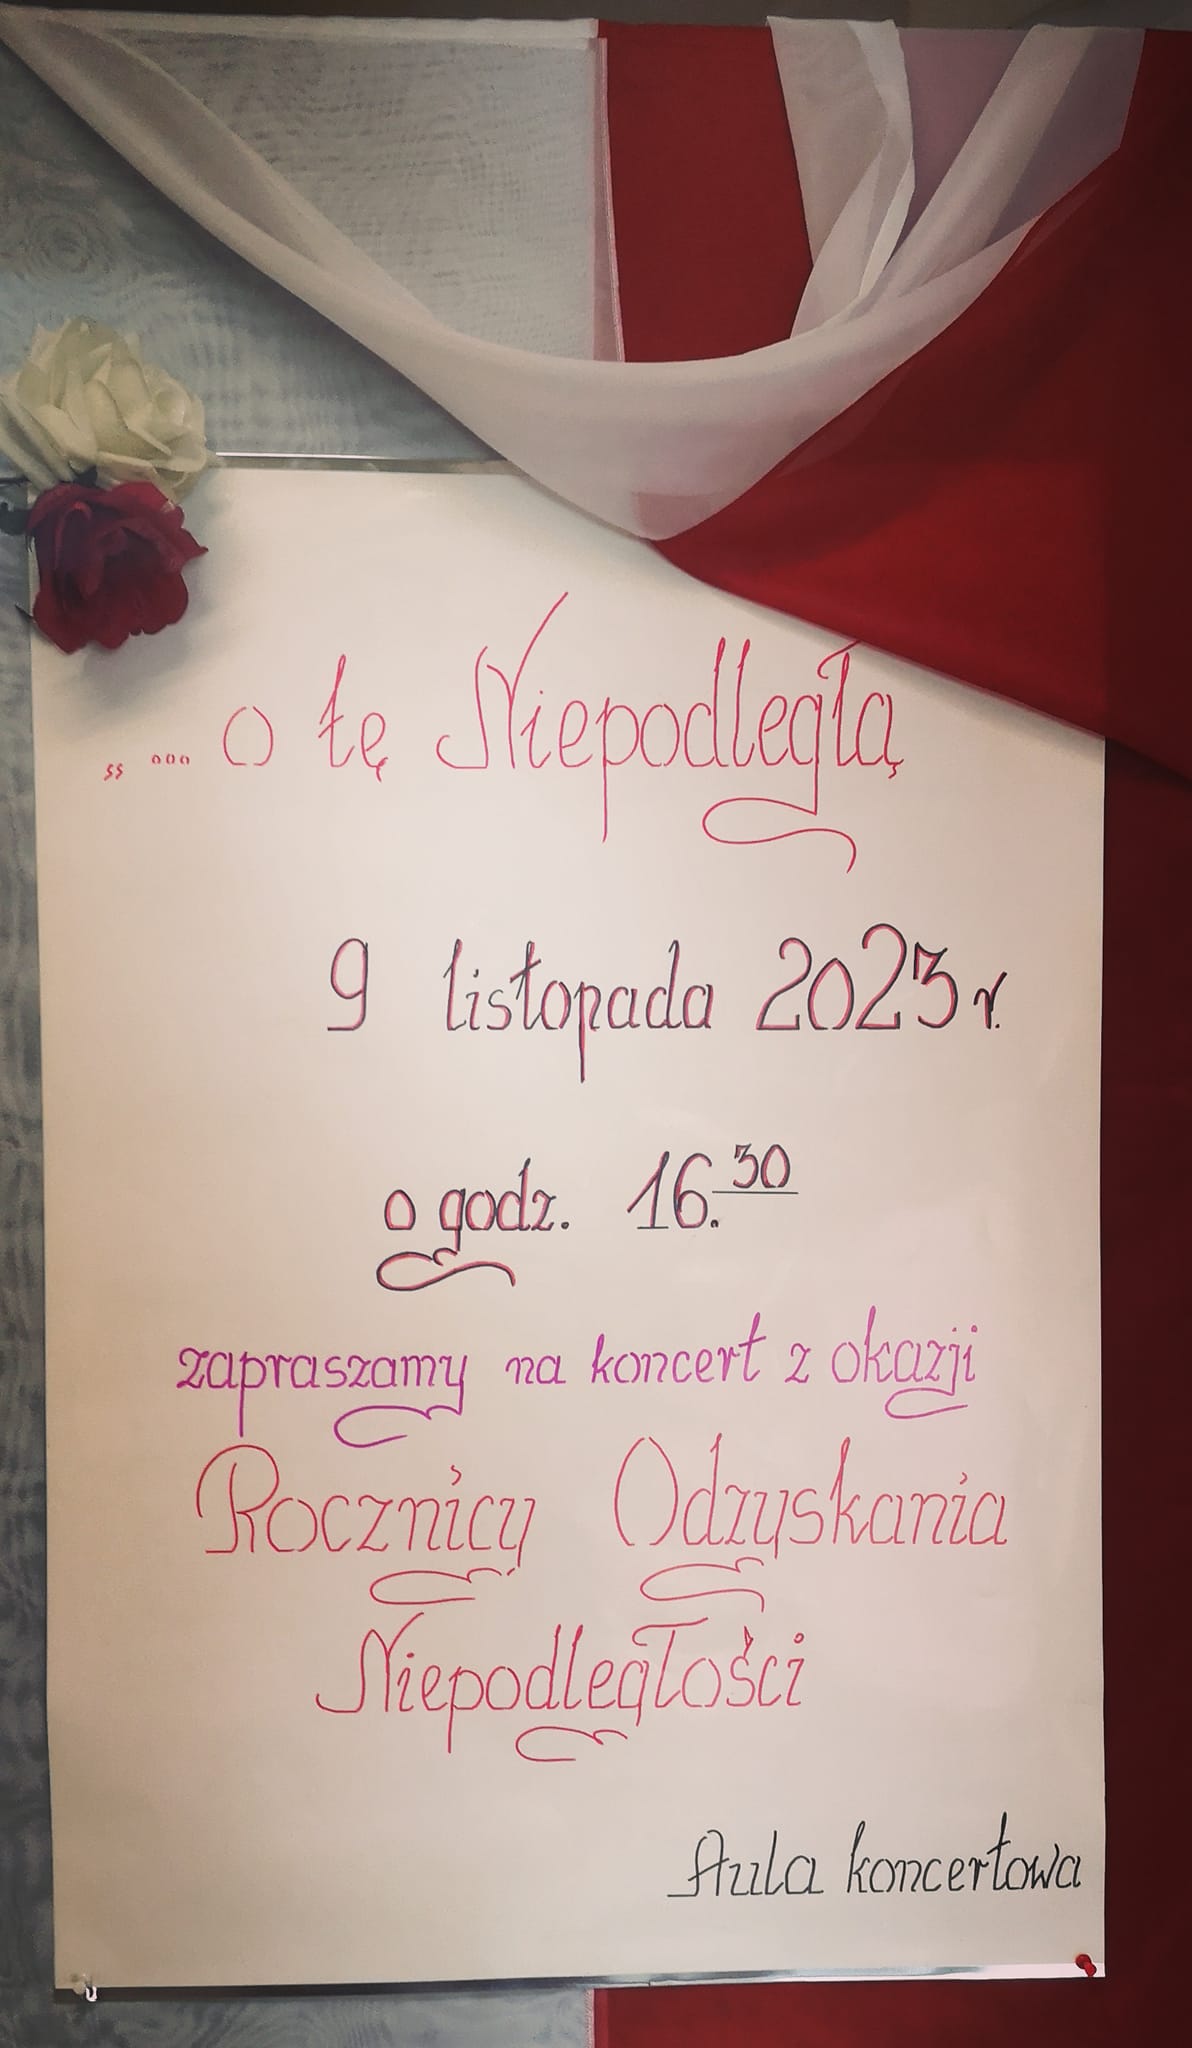 „ ... o tę Niepodległą
9 listopada 2023 r.
o godz. 16.30
zapraszamy na koncert z okazji
Rocznicy Odzyskania
Niepodległości
Aula koncertowa